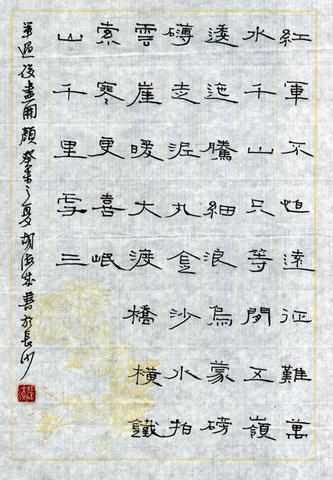 紅軍不怕遠征難萬
水千山只等閒五嶺
逶迤騰細浪烏蒙磅
礴走泥丸金沙水拍
雲崖暖大渡橋橫鐵
索寒更喜岷
山千里雪三
軍過後盡開顏癸未之夏書於長沙